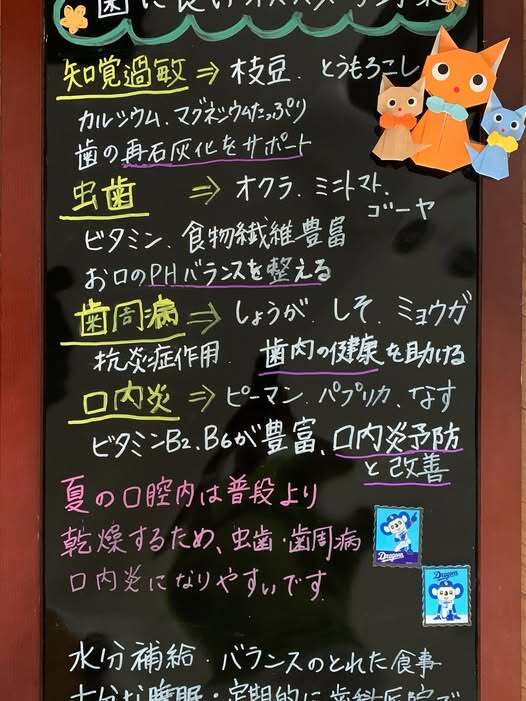 歯に良いオススメ
知覚過敏 ⇒ 枝豆．とうもろこし
カルシウム、マグネシウムたっぷり
歯の再石灰化をサポート
虫歯 ⇒ オクラ．ミニトマト．
ゴーヤ
ビタミン、食物繊維豊富
お口のPHバランスを整える
歯周病 ⇒ しょうが．しそ．ミョウガ
抗炎症作用 歯肉の健康を助ける
口内炎 ⇒ ピーマン、パプリカ、なす
ビタミンB2、B6が豊富、口内炎予防
と改善
夏の口腔内は普段より
乾燥するため、虫歯・歯周病
口内炎になりやすいです．
Dragons
Dragons
水分補給・バランスのとれた食事
十分な睡眠・定期的に歯科医院で